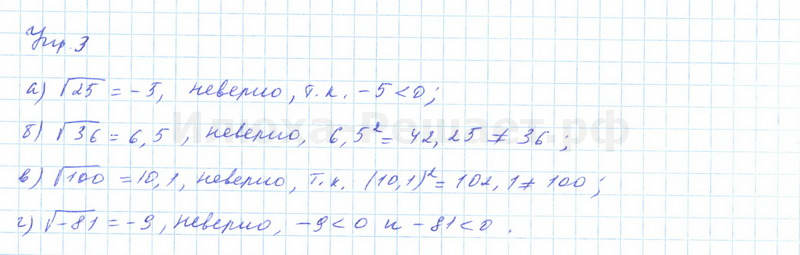 Упр 3
а) √25 = -5, неверно, т.к. -5 < 0;
б) √36 = 6,5, неверно, 6,5² = 42,25 ≠ 36;
в) √100 = 10,1, неверно, т.к. (10,1)² = 102,1 ≠ 100;
г) √-81 = -9, неверно, -9 < 0 и -81 < 0.
Илюха-Решает.рф